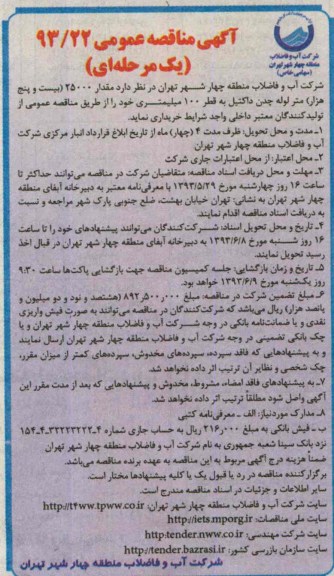 شرکت آب و فاضلاب
منطقه چهار شهر تهران
(سهامی خاص)
آگهی مناقصه عمومی ۹۳/۲۲
(یک مرحله‌ای)
شرکت آب و فاضلاب منطقه چهار شهر تهران در نظر دارد مقدار ۲۵۰۰۰ (بیست و پنج
هزار) متر لوله چدن داکتیل به قطر ۱۰۰ میلیمتری خود را از طریق مناقصه عمومی از
تولیدکنندگان معتبر داخلی واجد شرایط خریداری نماید.
۱ـ مدت و محل تحویل: ظرف مدت ۴ (چهار) ماه از تاریخ ابلاغ قرارداد انبار مرکزی شرکت
آب و فاضلاب منطقه چهار شهر تهران
۲ـ محل اعتبار: از محل اعتبارات جاری شرکت
۳ـ مهلت و محل دریافت اسناد مناقصه: متقاضیان شرکت در مناقصه می‌توانند حداکثر تا
ساعت ۱۶ روز چهارشنبه مورخ ۱۳۹۳/۵/۲۹ با معرفی‌نامه معتبر به دبیرخانه آبفای منطقه
چهار شهر تهران به نشانی: تهران خیابان بهشت، ضلع جنوبی پارک شهر مراجعه و نسبت
به دریافت اسناد مناقصه اقدام نمایند.
۴ـ تاریخ و محل تحویل اسناد: شرکت‌کنندگان می‌توانند پیشنهادهای خود را تا ساعت
۱۶ روز شنبه مورخ ۱۳۹۳/۶/۸ به دبیرخانه آبفای منطقه چهار شهر تهران در قبال اخذ
رسید تحویل نمایند.
۵ـ تاریخ و زمان بازگشایی: جلسه کمیسیون مناقصه جهت بازگشایی پاکت‌ها ساعت ۹:۳۰
روز یکشنبه مورخ ۱۳۹۳/۶/۹ خواهد بود.
۶ـ مبلغ تضمین شرکت در مناقصه: مبلغ ۸۹۲٫۵۰۰٫۰۰۰ (هشتصد و نود و دو میلیون و
پانصد هزار) ریال می‌باشد که شرکت‌کنندگان در مناقصه می‌توانند به صورت فیش واریزی
نقدی و یا ضمانت‌نامه بانکی در وجه شرکت آب و فاضلاب منطقه چهار شهر تهران و یا
چک بانکی تضمینی در وجه شرکت آب و فاضلاب منطقه چهار شهر تهران ارسال نمایند
و به پیشنهادهایی که فاقد سپرده، سپرده‌های مخدوش، سپرده‌های کمتر از میزان مقرر،
چک شخصی و نظایر آن ترتیب اثر داده نخواهد شد.
۷ـ به پیشنهادهای فاقد امضاء، مشروط، مخدوش و پیشنهادهایی که بعد از مدت مقرر این
آگهی واصل شود مطلقاً ترتیب اثر داده نخواهد شد.
۸ـ مدارک موردنیاز: الف ـ معرفی‌نامه کتبی
ب ـ فیش بانکی به مبلغ ۲۱۶٫۰۰۰ ریال به حساب جاری شماره
نزد بانک سینا شعبه جمهوری به نام شرکت آب و فاضلاب منطقه چهار شهر تهران
ضمناً هزینه درج آگهی مربوط به این مناقصه به عهده برنده مناقصه می‌باشد.
برگزارکننده مناقصه در رد یا قبول یک یا کلیه پیشنهادها مختار است.
سایر اطلاعات و جزئیات در اسناد مناقصه مندرج است.
سایت شرکت آب و فاضلاب منطقه چهار شهر تهران: http://t4ww.tpww.co.ir
سایت ملی مناقصات: http://iets.mporg.ir
سایت شرکت مهندسی: http:tender.nww.co.ir
سایت سازمان بازرسی کشور: http://tender.bazrasi.ir
شرکت آب و فاضلاب منطقه چهار شهر تهران